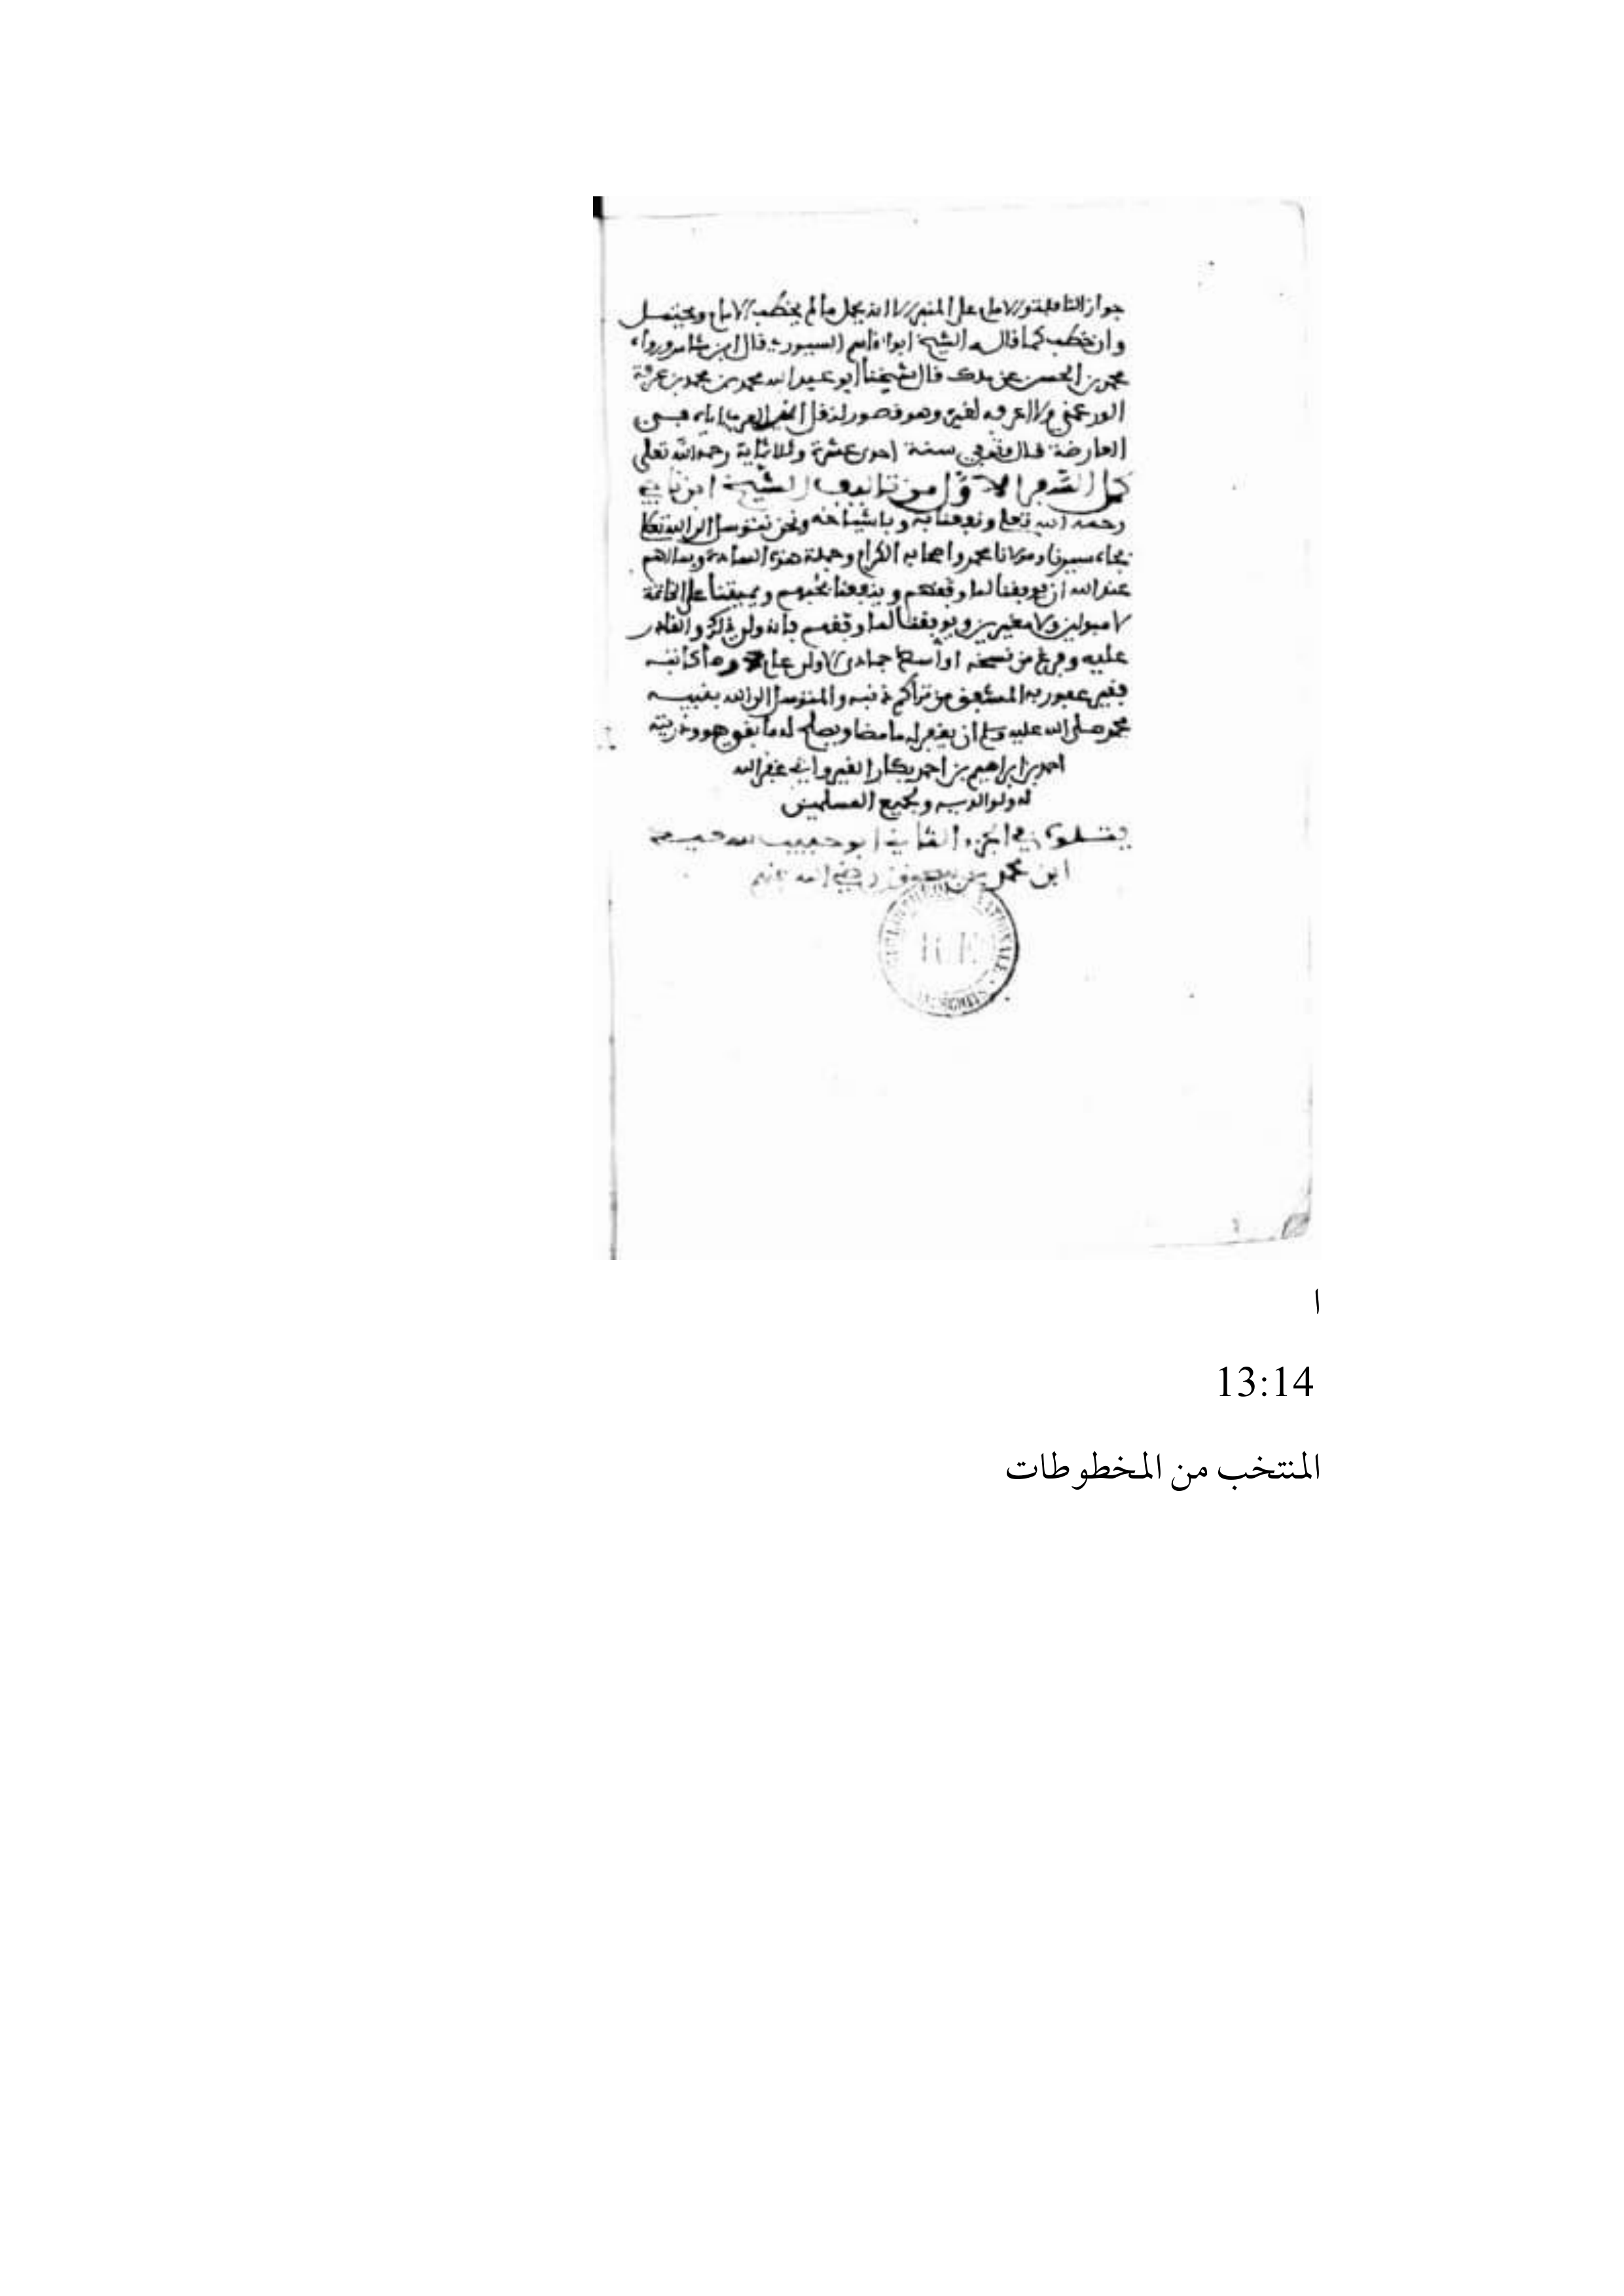 جواز النافلة والامام على المنبر الا انه يحمل ما لم يخطب الامام ويحتمل
وان خطب كما قاله الشيخ ابوا قاسم السيوري قال ابن شاس وروا
محمد بن الحسن عن ملك قال شيخنا ابو عبد الله محمد بن محمد بن عرفة
الورغمي ولا اعرفه لغيره وهو قصور لنقل ابن العربي اياه في
العارضة قال وتوفي سنة احدى عشرة وثلاثماية رحمه الله تعلى
كمل السفر الاول من تاليف الشيخ ابن ناجي
رحمه الله تعلى ونفعنا به وباشياخه ونحن نتوسل الى الله تعلى
بجاه سيدنا ومولانا محمد واصحابه الكرام وجملة هذه السادة وبمالهم
عند الله ان يوفقنا لما وفقهم وينفعنا بحبهم ويميتنا على الخاتمة
لا مبدلين ولا مغيرين ويوفقنا لما وفقهم فانه ولي ذلك والقادر
عليه وفرغ من نسخه اواسط جمادى الاولى عام وما كاتبه
فقير عفو ربه المشفق من تراكم ذنبه والمتوسل الى الله بنبيه
محمد صلى الله عليه وسلم ان يغفر له ما مضا ويصلح له ما بقي هو وذريته
احمد بن ابراهيم بن احمد بكار القيرواني غفر الله
له ولوالديه ولجميع المسلمين
يتلوه في الجزء الثاني ابو حبيب
ابن محمد بن رضي الله عنهم
BIBLIOTHEQUE NATIONALE
R.F.
ا
13:14
المنتخب من المخطوطات